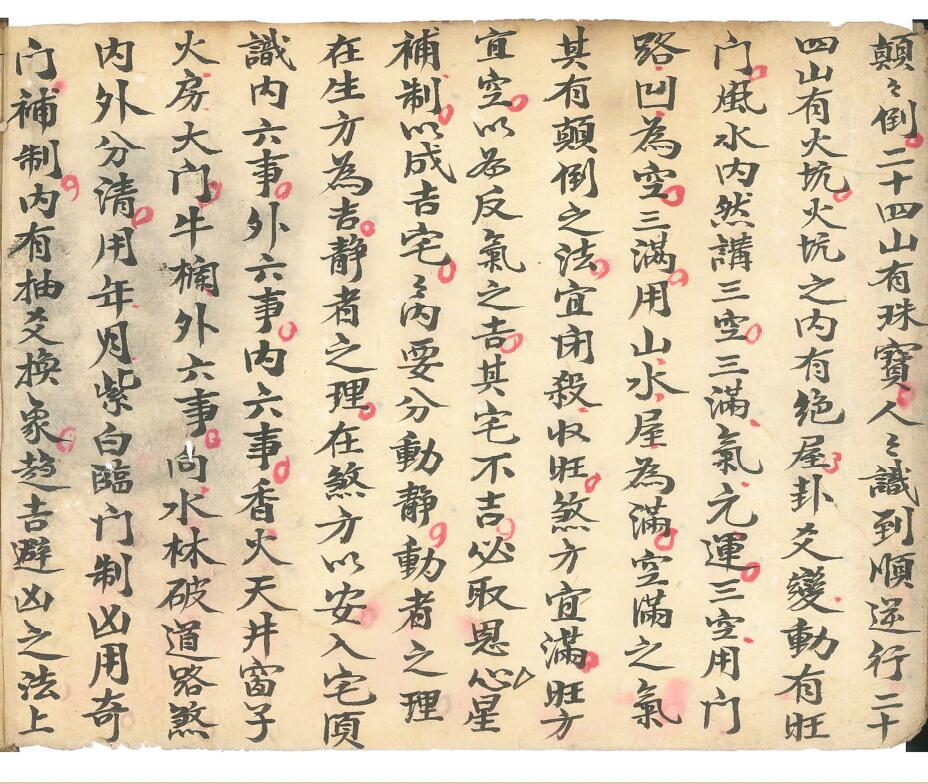 顛〻倒二十四山有珠寶人〻識到順逆行二十
四山有火坑火坑之内有絶屋卦爻變動有旺
门風水内然講三空三滿氣元運三空用门
路凹為空三滿用山水屋為滿空滿之氣
其有顛倒之法宜闭殺収旺煞方宜滿旺方
宜空以為反氣之吉其宅不吉必取恩心星
補制以成吉宅〻内要分動静動者之理
在生方為吉静者之理在煞方以安入宅須
識内六事外六事内六事香火天井窗子
火房大门牛欄外六事向水林破道路煞
内外分清用年月紫白臨门制凶用奇
门補制内有抽爻換象趋吉避凶之法上